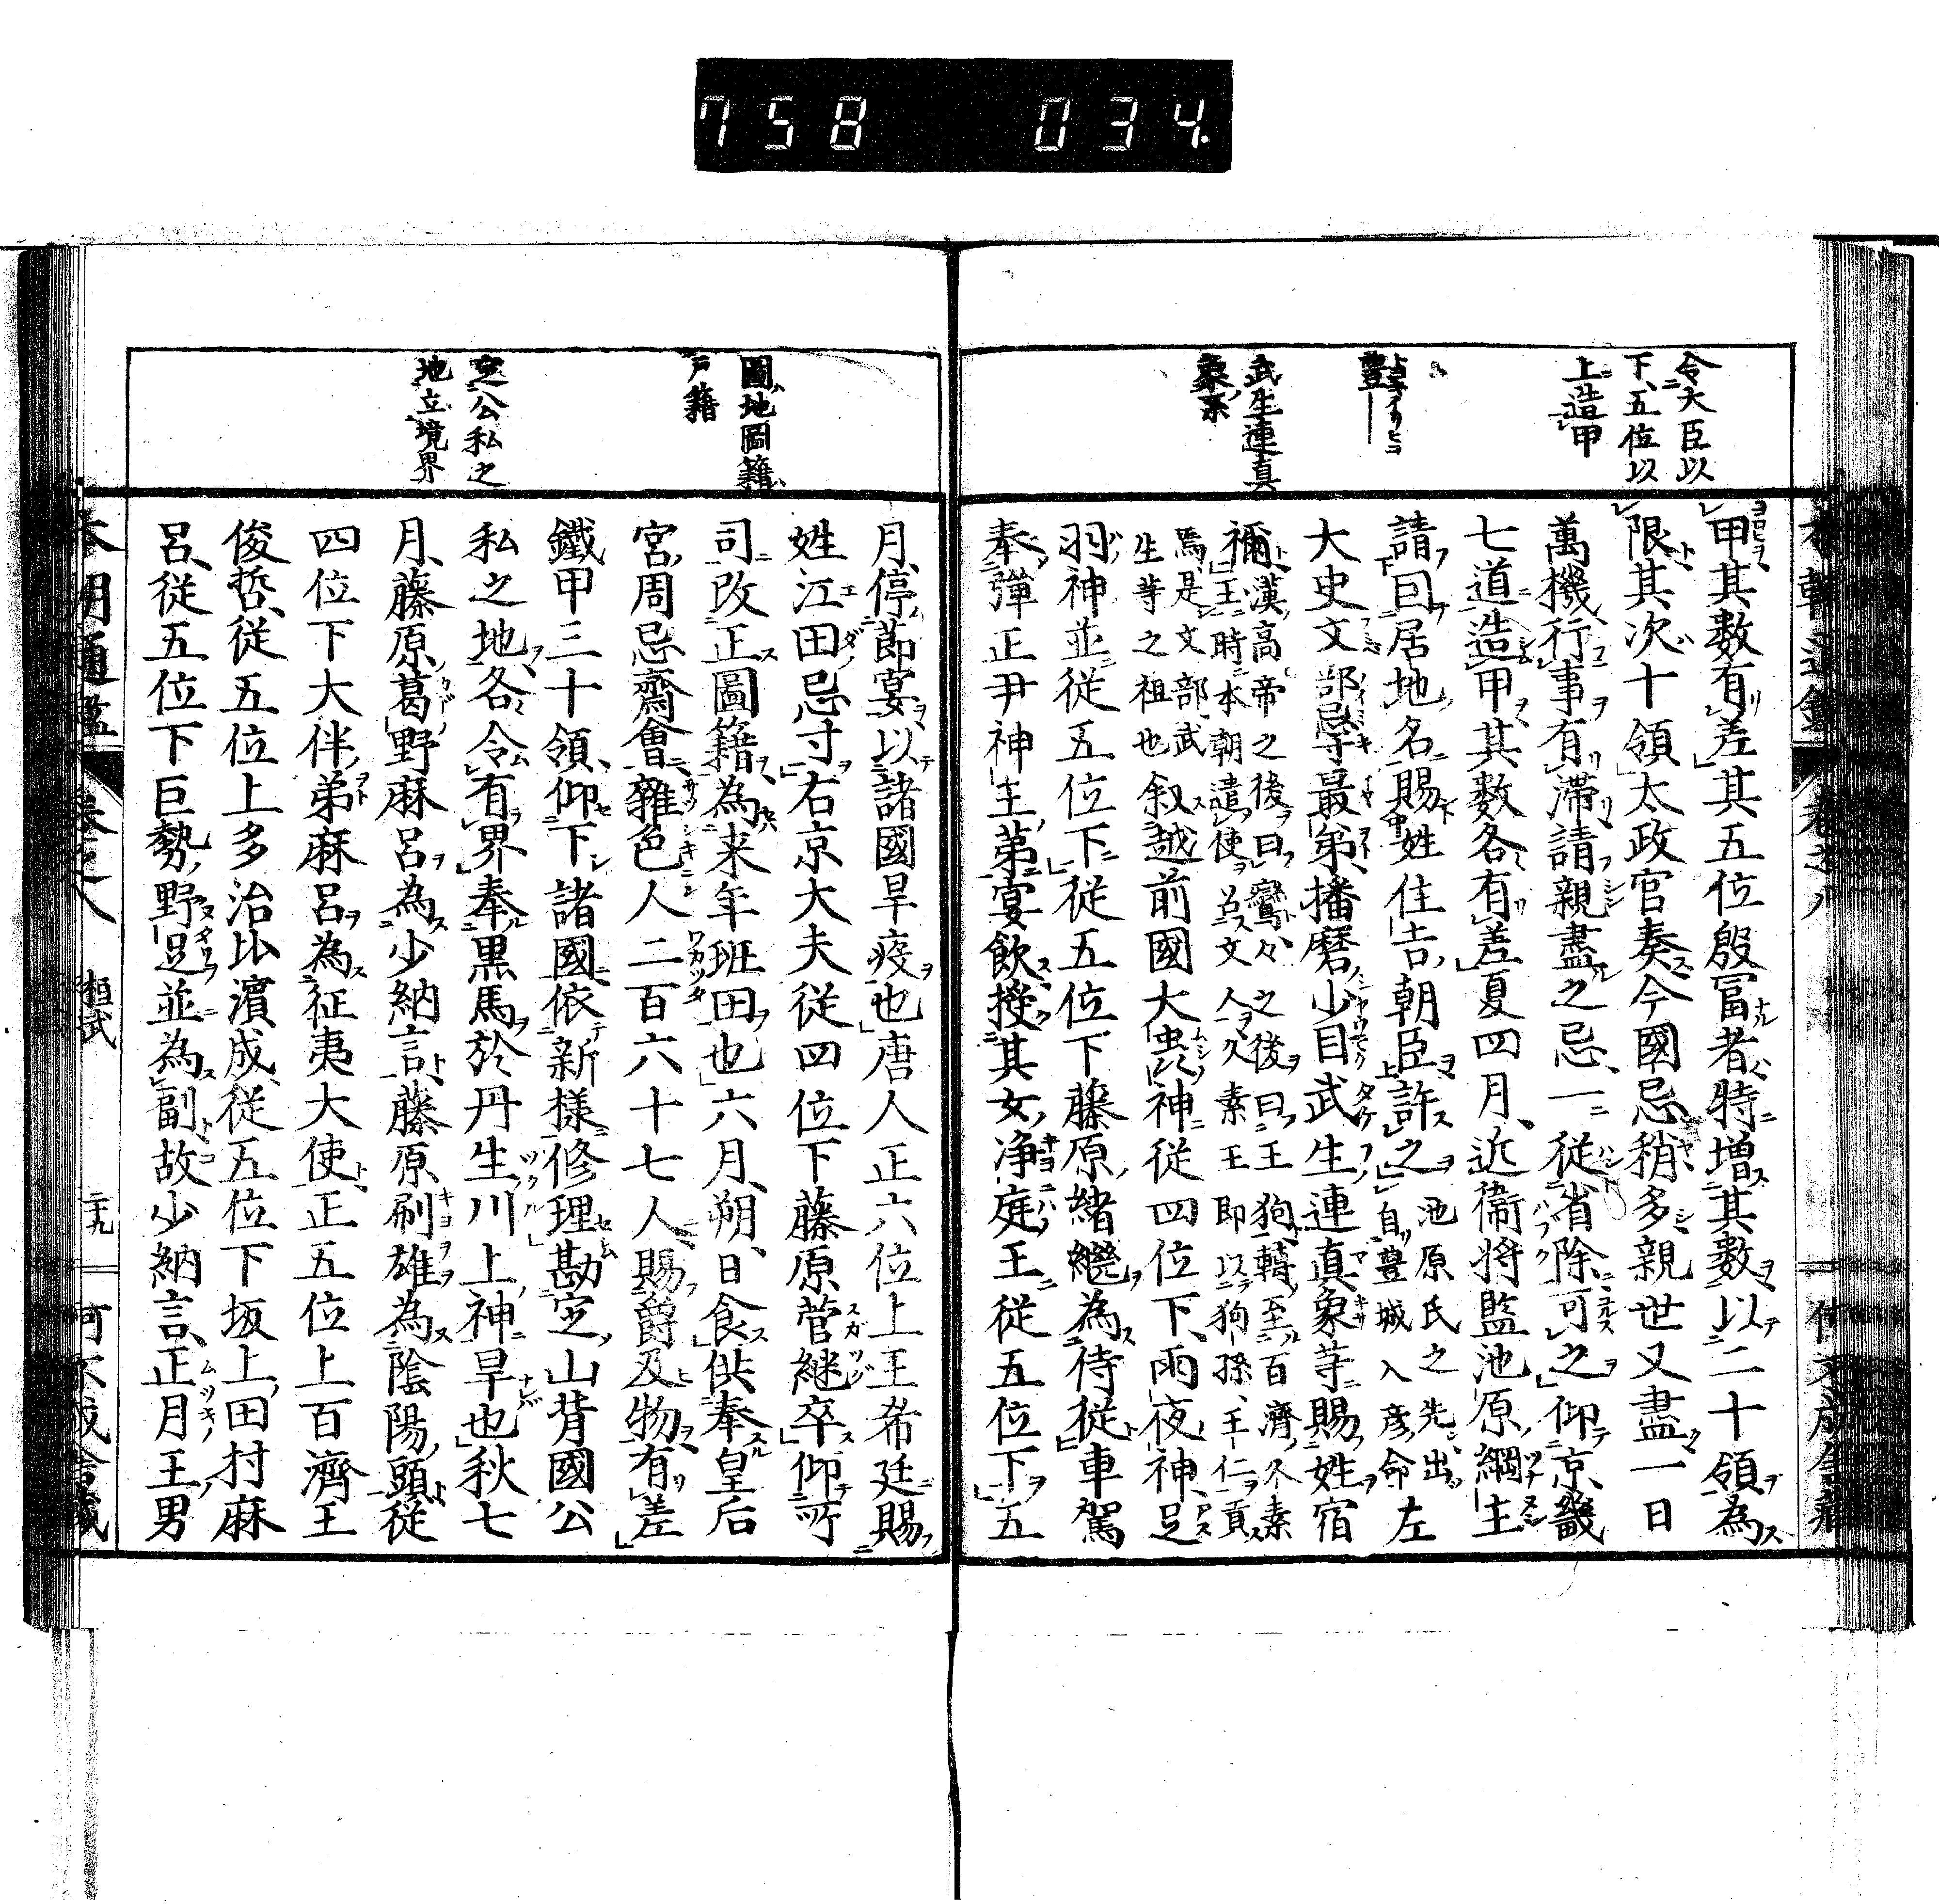 758 034
令大臣以
下、五位以
上造甲
豊
武生連真
象系
甲其数有差其五位殷冨者特増其数以二十領為
限其次十領太政官奏今國忌稍多親世又盡一日
萬機行事有滞請親盡之忌一従省除可之仰京畿
七道造甲其数各有差夏四月、近衛将監池原綱主
請曰居地名賜姓住吉朝臣許之池原氏之先出
自豊城入彦命左
大史文部忌寸最弟播磨少目武生連真象等賜姓宿
禰漢高帝之後曰鸞々之後曰王狗轉至百濟久素
王時本朝遣使召文人久素王即以狗孫、王仁貢
焉是文部武
生等之祖也叙越前國大虫神従四位下、雨夜神足
羽神並従五位下従五位下藤原緒継為侍従車駕
奉彈正尹神王弟宴飲授其女浄庭王従五位下五
月、停節宴以諸國旱疫也唐人正六位上王希廷賜
姓江田忌寸右京大夫従四位下藤原菅継卒仰所
司改正圖籍為来年班田也六月、朔、日食供奉皇后
宮周忌齋會雜色人二百六十七人賜爵及物有差
鐵甲三十領、仰下諸國依新樣修理勘定山背國公
私之地各令有界奉黒馬於丹生川上神旱也秋七
月、藤原葛野麻呂為少納言、藤原刷雄為陰陽頭従
四位下大伴弟麻呂為征夷大使、正五位上百濟王
俊哲、従五位上多治比濱成、従五位下坂上田村麻
呂、従五位下巨勢野足並為副故少納言、正月王男
圖地圖籍
戸籍
定公私之
地立境界
本朝通鑑 巻之八 桓武 二十九